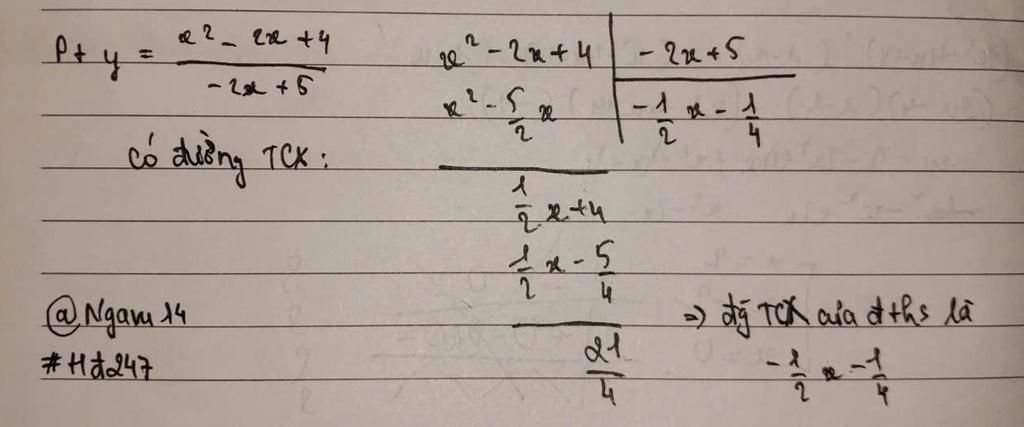 Pt y = \frac{x^2 - 2x + 4}{-2x + 5}
có đường TCX:
x^2 - 2x + 4 | -2x + 5
x^2 - \frac{5}{2}x | -\frac{1}{2}x - \frac{1}{4}
\frac{1}{2}x + 4
\frac{1}{2}x - \frac{5}{4}
\frac{21}{4}
@Ngam14
#Hđ247
=> đg TCX của đths là
-\frac{1}{2}x - \frac{1}{4}